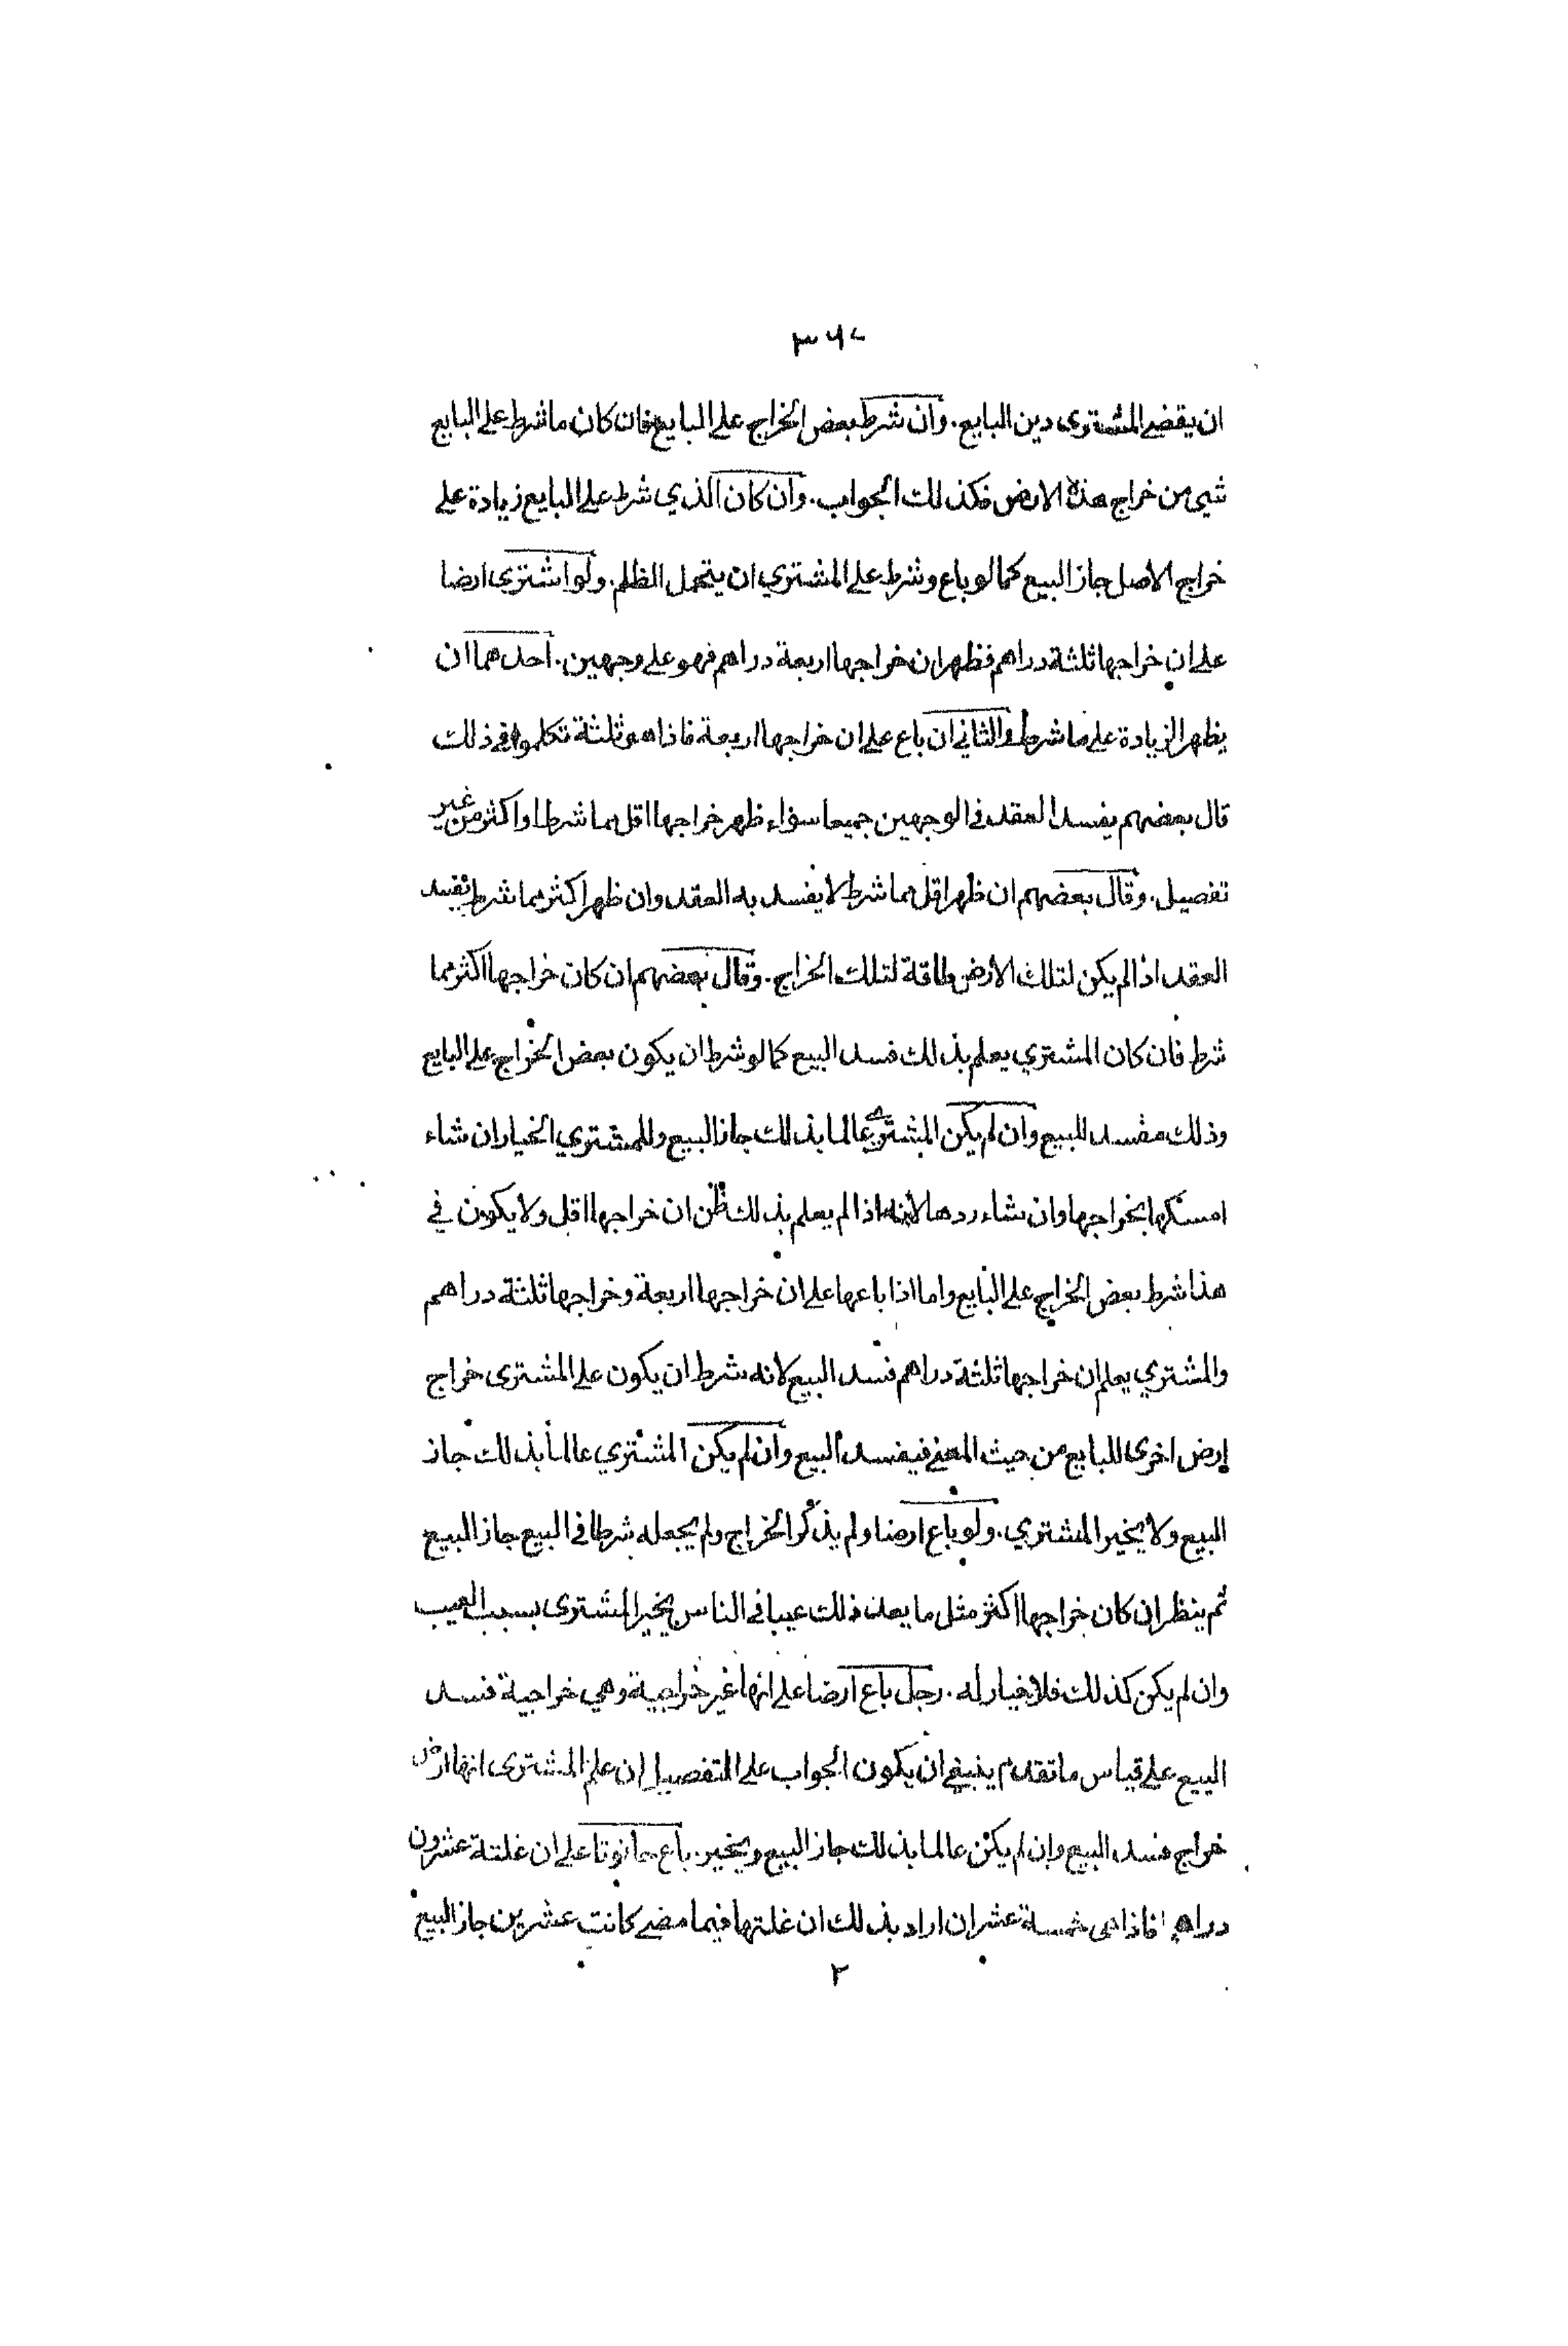 ٣٦٢
ان يقضي المشتري دين البايع . وان شرط بعض الخراج على البايع فان كان ما شرط على البايع
شيء من خراج هذه الارض فكذلك الجواب . وان كان الذي شرط على البايع زيادة على
خراج الاصل جاز البيع كما لو باع وشرط على المشتري ان يتحمل الظلم . ولو اشترى ارضا
على ان خراجها ثلثة دراهم فظهر ان خراجها اربعة دراهم فهو على وجهين . احدهما ان
يظهر الزيادة على ما شرط والثاني ان باع على ان خراجها اربعة فاذا هو ثلثة تكلموا في ذلك
قال بعضهم يفسد العقد في الوجهين جميعا سواء ظهر خراجها اقل مما شرط او اكثر من غير
تفصيل . وقال بعضهم ان ظهر اقل مما شرط لا يفسد به العقد وان ظهر اكثر مما شرط يفسد
العقد اذا لم يكن لتلك الارض طاقة لتلك الخراج . وقال بعضهم ان كان خراجها اكثر مما
شرط فان كان المشتري يعلم بذلك فسد البيع كما لو شرط ان يكون بعض الخراج على البايع
وذلك مفسد للبيع وان لم يكن المشتري عالما بذلك جاز البيع وللمشتري الخيار ان شاء
امسكها بخراجها وان شاء ردها لانه اذا لم يعلم بذلك ظن ان خراجها اقل ولا يكون في
هذا شرط بعض الخراج على البايع واما اذا باعها على ان خراجها اربعة وخراجها ثلثة دراهم
والمشتري يعلم ان خراجها ثلثة دراهم فسد البيع لانه شرط ان يكون على المشتري خراج
ارض اخرى للبايع من حيث المعنى فيفسد البيع وان لم يكن المشتري عالما بذلك جاز
البيع ولا يخير المشتري . ولو باع ارضا ولم يذكر الخراج ولم يجعله شرطا في البيع جاز البيع
ثم ينظر ان كان خراجها اكثر مثل ما يعد ذلك عيبا في الناس يخير المشتري بسبب العيب
وان لم يكن كذلك فلا خيار له . رجل باع ارضا على انها غير خراجية وهي خراجية فسد
البيع على قياس ما تقدم ينبغي ان يكون الجواب على التفصيل ان علم المشتري انها ارض
خراج فسد البيع وان لم يكن عالما بذلك جاز البيع ويخير . باع حانوتا على ان غلته عشرون
دراهم فاذا هي خمسة عشر ان اراد بذلك ان غلتها فيما مضى كانت عشرين جاز البيع
٢